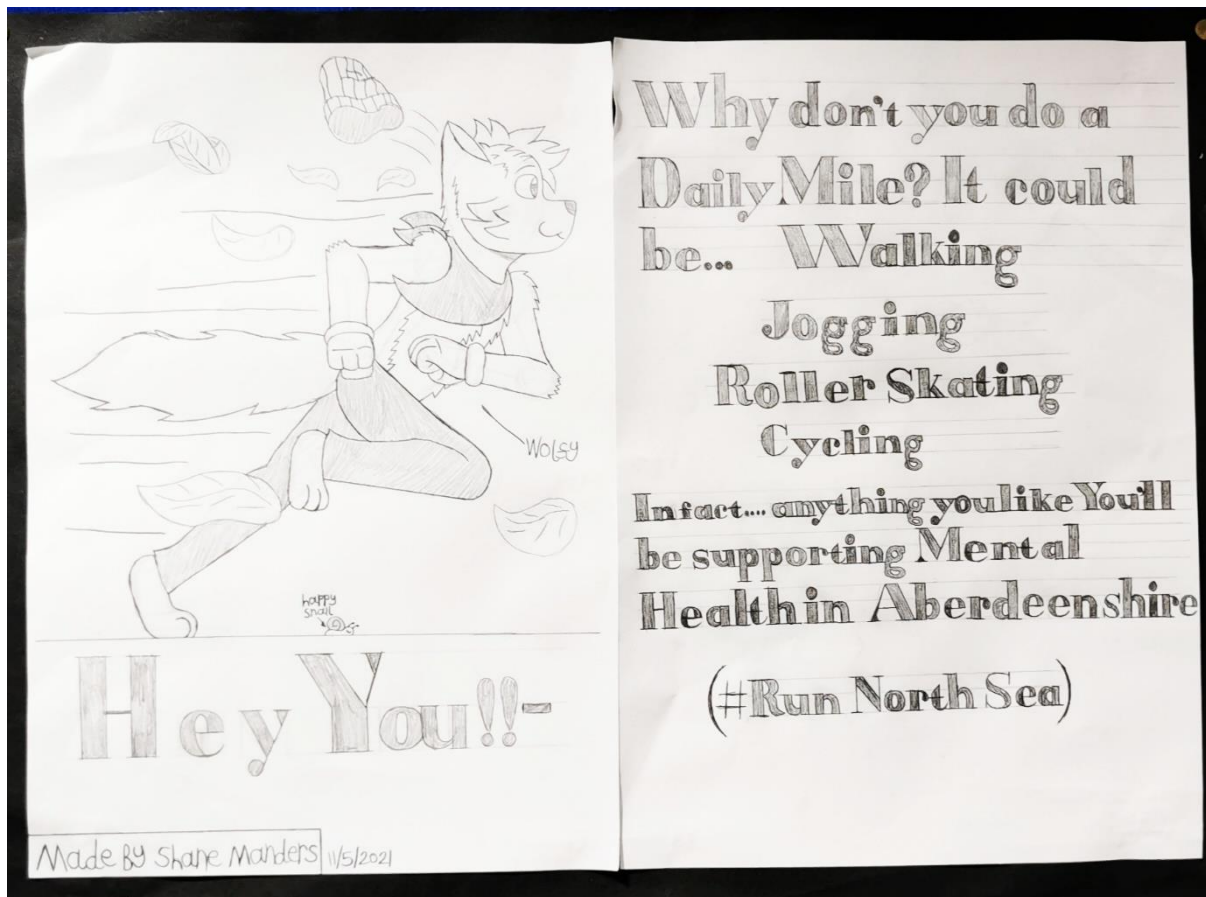 Wolfy
happy
snail
Hey You!!-
Made By Shane Manders 11/5/2021
Why don't you do a
Daily Mile? It could
be... Walking
Jogging
Roller Skating
Cycling
Infact.... anything you like You'll
be supporting Mental
Health in Aberdeenshire
(#Run North Sea)